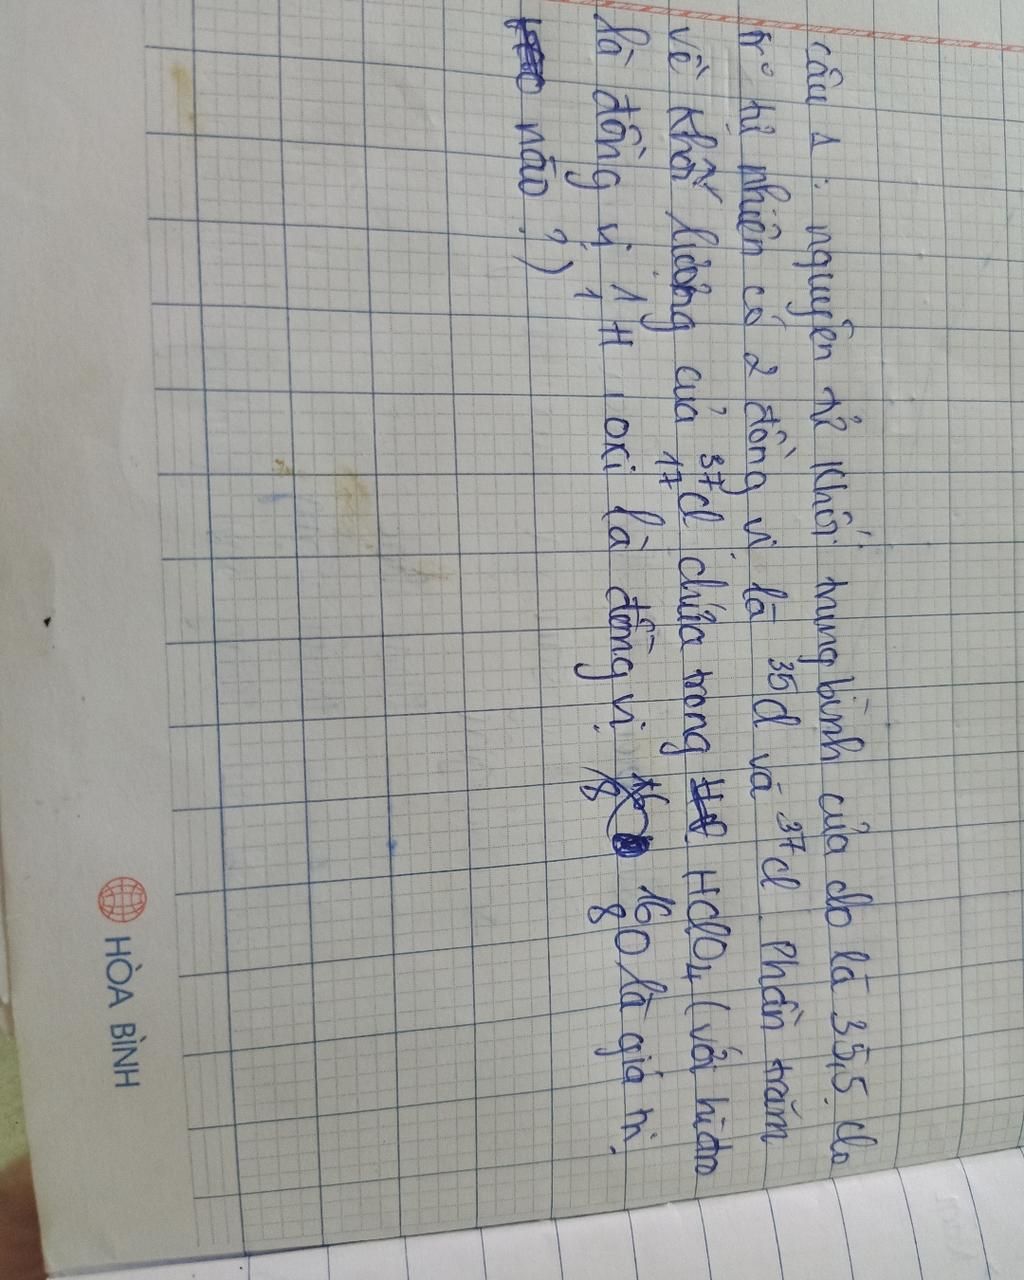 câu 1 : nguyên tử khối trung bình của clo là 35,5. clo
tr° tự nhiên có 2 đồng vị là ³⁵Cl và ³⁷Cl. Phần trăm
về khối lượng của ³⁷₁₇Cl chứa trong HClO₄ (với hiđro
là đồng vị ¹₁H, oxi là đồng vị ¹⁶₈O là giá trị
nào ?)
HÒA BÌNH